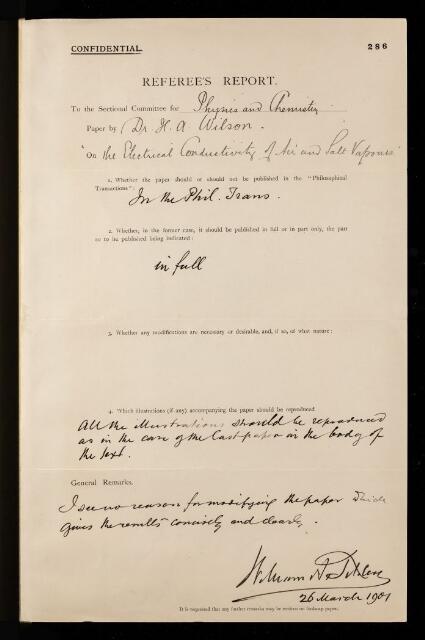 CONFIDENTIAL.
286
REFEREE'S REPORT.
To the Sectional Committee for Physics and Chemistry
Paper by Dr. H. A Wilson.
"On the Electrical Conductivity of Air and Salt Vapours"
1. Whether the paper should or should not be published in the "Philosophical
Transactions":
In the Phil. Trans.
2. Whether, in the former case, it should be published in full or in part only, the part
so to be published being indicated:
in full
3. Whether any modifications are necessary or desirable, and, if so, of what nature:
4. Which illustrations (if any) accompanying the paper should be reproduced
All the illustrations should be reproduced
as in the case of the last paper in the body of
the text.
General Remarks.
I see no reason for modifying the paper which
gives the results concisely and clearly.
William A. Tilden
26 March 1901
It is requested that any further remarks may be written on foolscap paper.